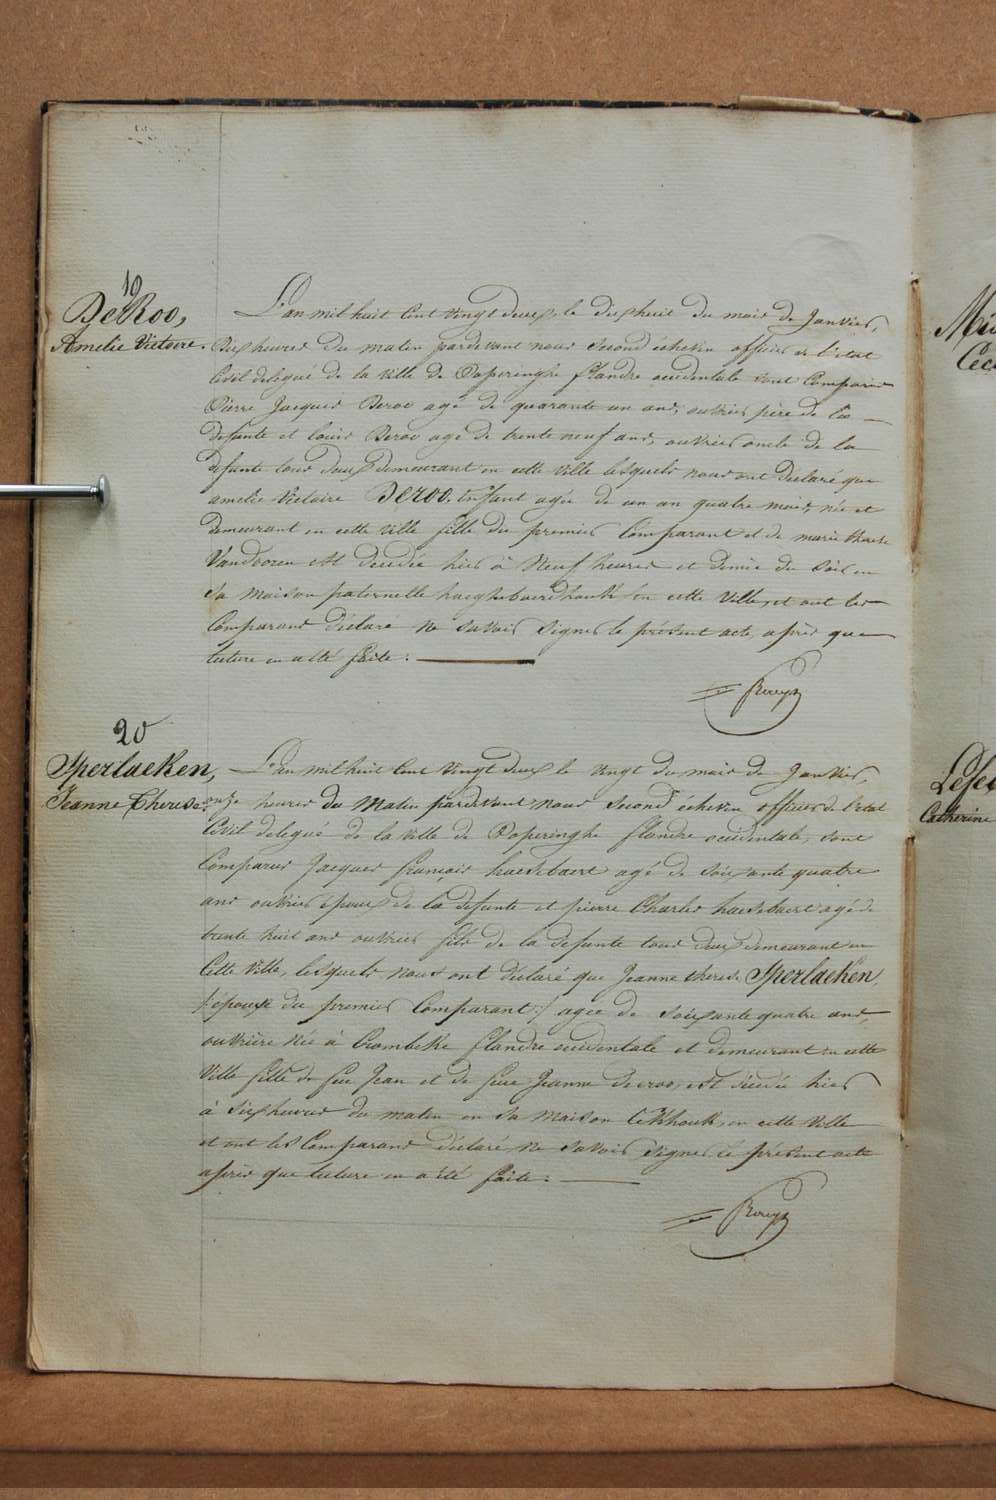 19
DeRoo,
Amelie Victoire.
L'an mil huit Cent vingt deux, le dix huit du mois de Janvier,
Dix heures du matin pardevant nous Second échevin officier de l'état
Civil delegué de la ville de Poperinghe flandre occidentale sont Comparus
Pierre Jacques Deroo agé de quarante un ans, ouvrier père de la
defunte et louis Deroo agé de trente neuf ans, ouvrier oncle de la
defunte tous deux demeurant en cette ville lesquels nous ont déclaré que
amelie Victoire DeRoo. Enfant agée de un an quatre mois, née et
demeurant en cette ville fille du premier Comparant et de marie therese
Vandooren est decedée hier à Neuf heures et demie du soir en
sa maison paternelle haeghebaerdhouk en cette Ville, et ont les
Comparans déclaré ne savoir signer le présent acte, après que
lecture en a été faite.
20
Sperlaeken,
Jeanne Therese.
L'an mil huit Cent vingt deux le vingt du mois de Janvier,
onze heures du Matin pardevant nous Second échevin officier de l'état
Civil delegué de la ville de Poperinghe flandre occidentale, sont
Comparus Jacques françois haesebaert agé de soixante quatre
ans ouvrier epoux de la defunte et pierre Charles haesebaert agé de
trente huit ans ouvrier fils de la defunte tous deux demeurant en
Cette Ville, lesquels nous ont déclaré que Jeanne therese Sperlaeken,
/: épouse du premier Comparant :/ agée de soixante quatre ans,
ouvrière née à Crombeke flandre occidentale et demeurant en cette
Ville fille de feu Jean et de feue Jeanne Deroo, est decedée hier
à dix heures du matin en sa maison Cekhouk, en cette Ville
et ont les Comparans déclaré, ne savoir signer ce présent acte
après que lecture en a été faite.